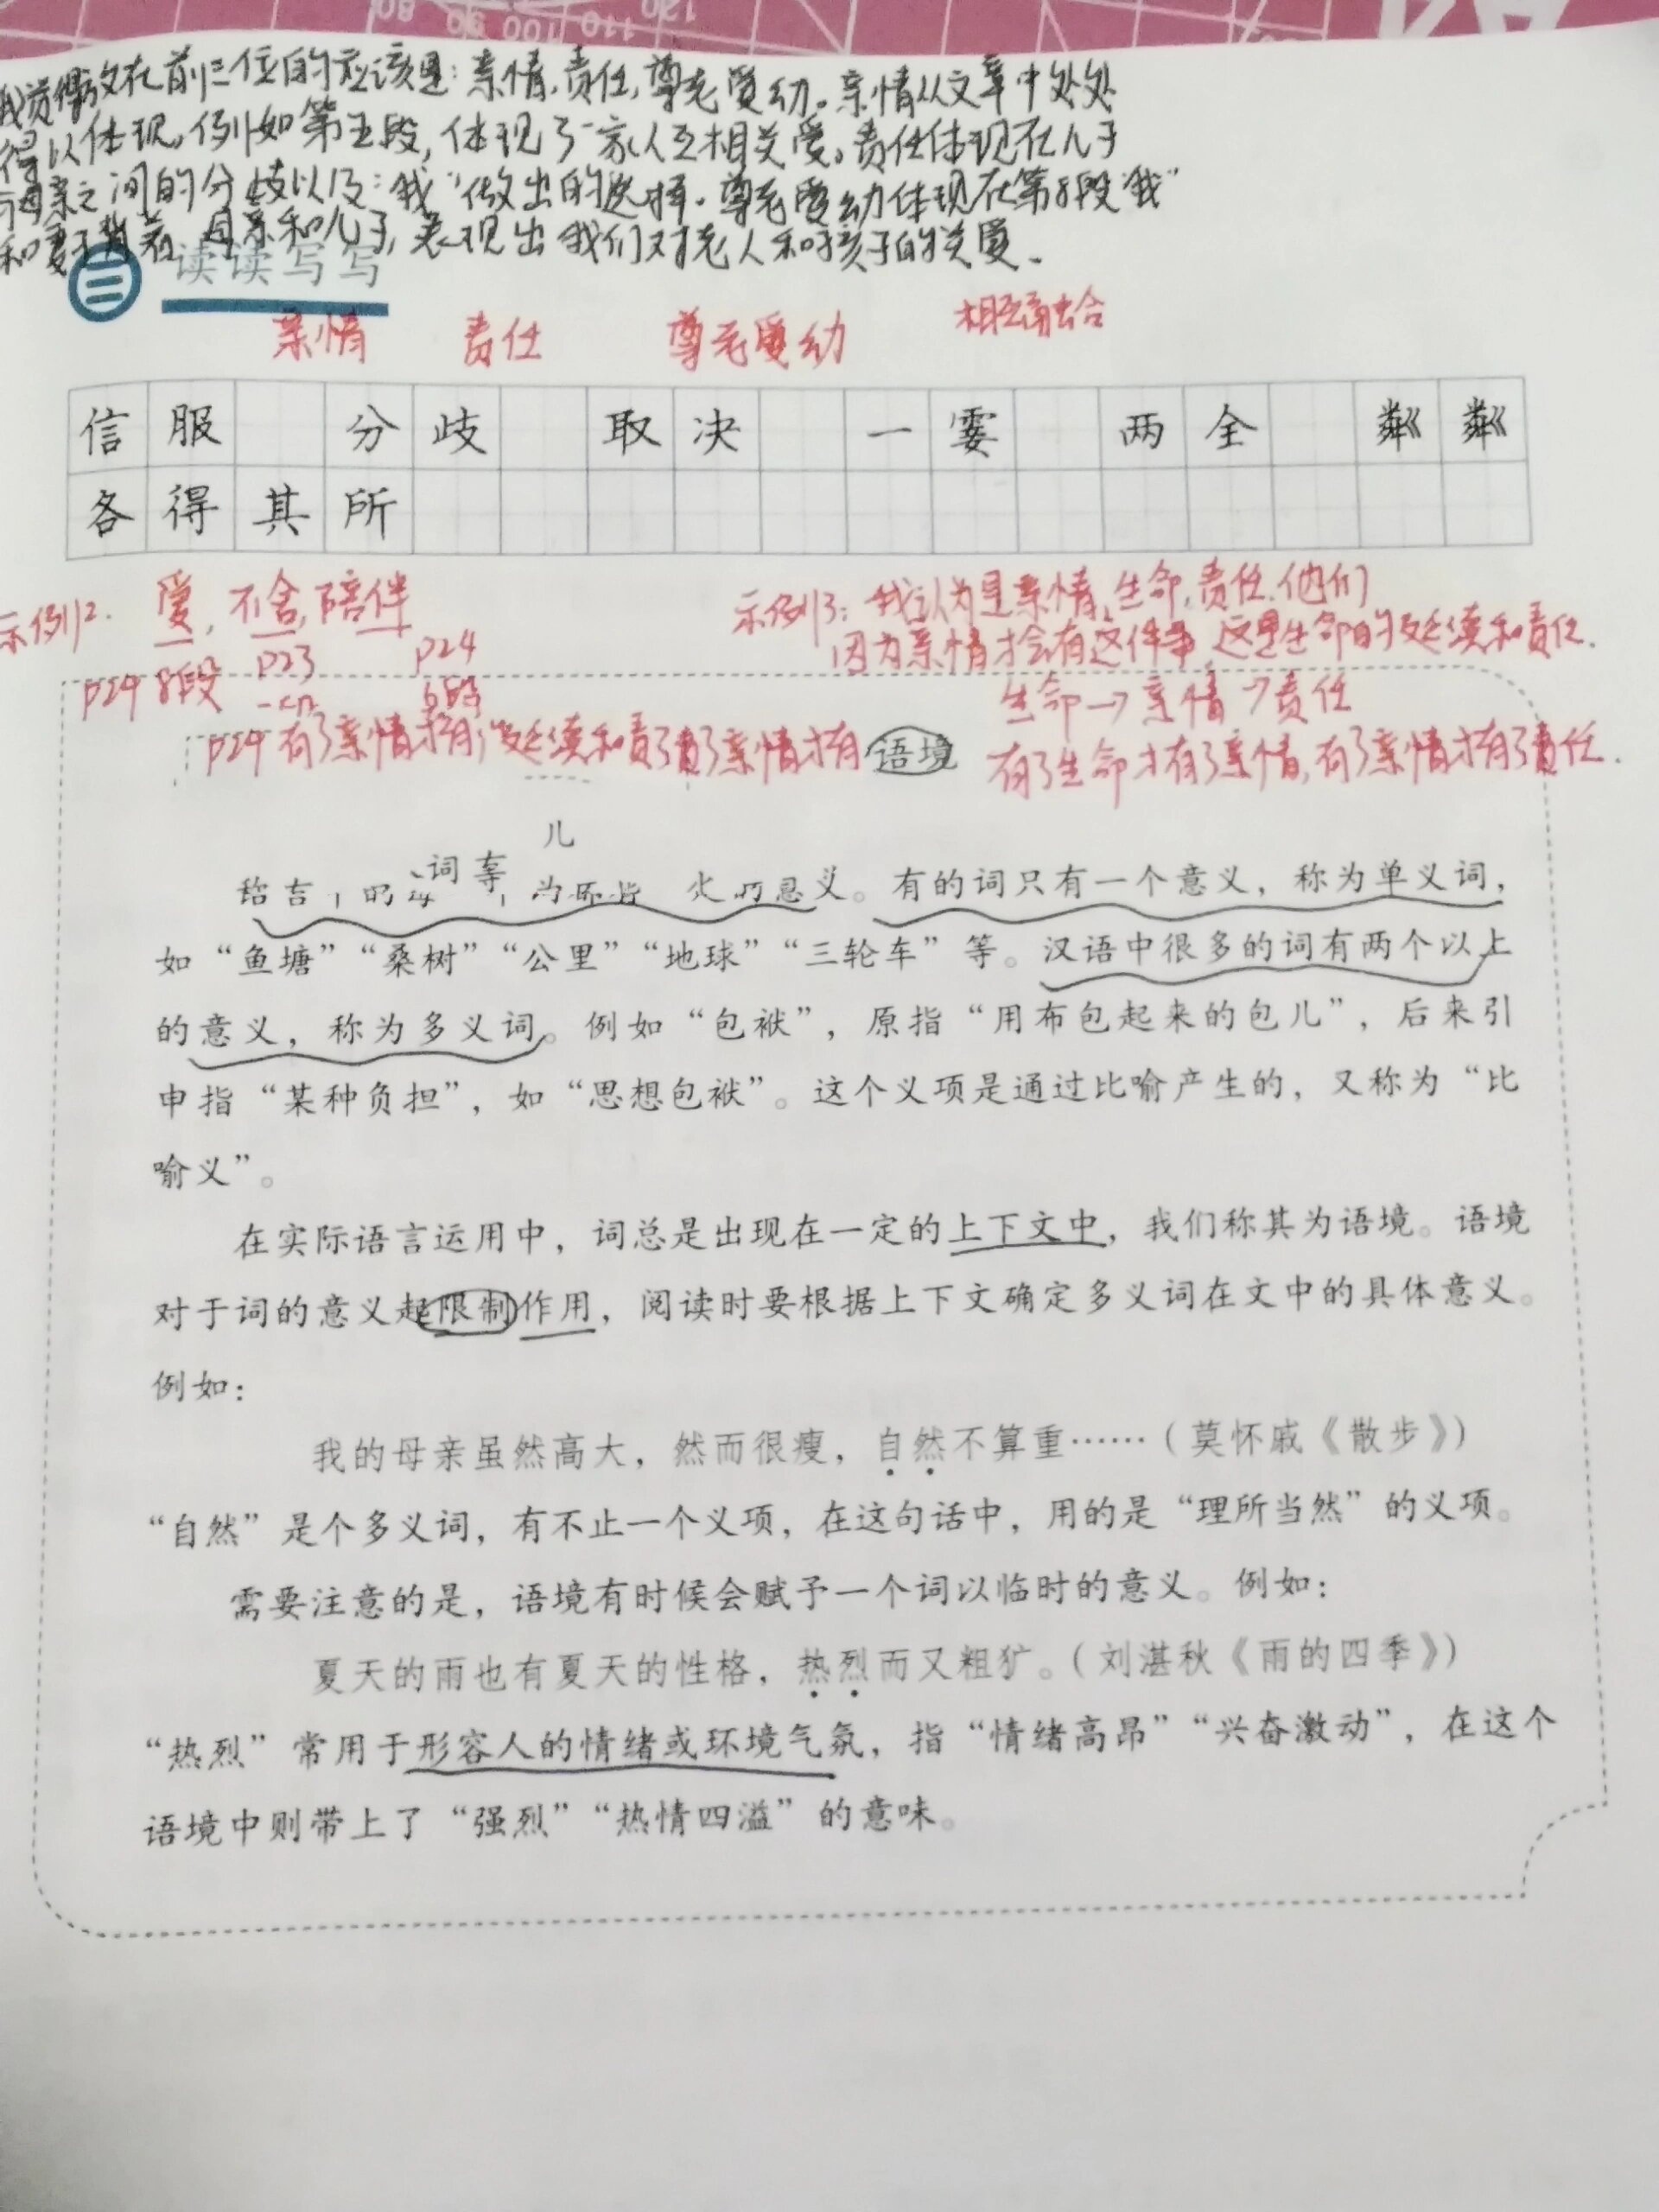 80 90 100 110 120
我觉得放在前三位的应该是:亲情,责任,尊老爱幼。亲情从文章中处处
得以体现,例如第五段,体现了一家人互相关爱。责任体现在儿子
母亲之间的分歧以及"我"做出的选择。尊老爱幼体现在第8段"我"
和妻子背着 母亲和儿子,表现出我们对老人和孩子的关爱。
三 读读写写
亲情 责任 尊老爱幼 相互融合
信服 分歧 取决 一霎 两全 粼粼
各得其所
示例2. 爱,不舍,陪伴
P24 8段 P23 P24 6段
示例3:我认为是亲情,生命,责任.他们
因为亲情才会有这件事,这是生命的延续和责任.
生命→亲情→责任
P24 有了亲情才有
语境
有了生命才有了亲情,有了亲情才有了责任.
义。有的词只有一个意义,称为单义词,
如“鱼塘”“桑树”“公里”“地球”“三轮车”等。汉语中很多的词有两个以上
的意义,称为多义词。例如“包袱”,原指“用布包起来的包儿”,后来引
申指“某种负担”,如“思想包袱”。这个义项是通过比喻产生的,又称为“比
喻义”。
在实际语言运用中,词总是出现在一定的上下文中,我们称其为语境。语境
对于词的意义起限制作用,阅读时要根据上下文确定多义词在文中的具体意义。
例如:
我的母亲虽然高大,然而很瘦,自然不算重……(莫怀戚《散步》)
“自然”是个多义词,有不止一个义项,在这句话中,用的是“理所当然”的义项。
需要注意的是,语境有时候会赋予一个词以临时的意义。例如:
夏天的雨也有夏天的性格,热烈而又粗犷。(刘湛秋《雨的四季》)
“热烈”常用于形容人的情绪或环境气氛,指“情绪高昂”“兴奋激动”,在这个
语境中则带上了“强烈”“热情四溢”的意味。